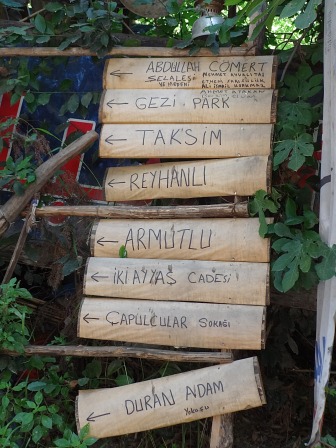 ABDULLAH CÖMERT
ŞELALESİ
MEHMET AYVALITAŞ
ETHEM SARISÜLÜK
ALİ İSMAİL KORKMAZ
AHMET ATAKAN
← GEZİ PARK
← TAKSİM
← REYHANLI
← ARMUTLU
← İKİ AYYAŞ CADESİ
← ÇAPULCULAR SOKAĞI
← DURAN ADAM
Yokuşu